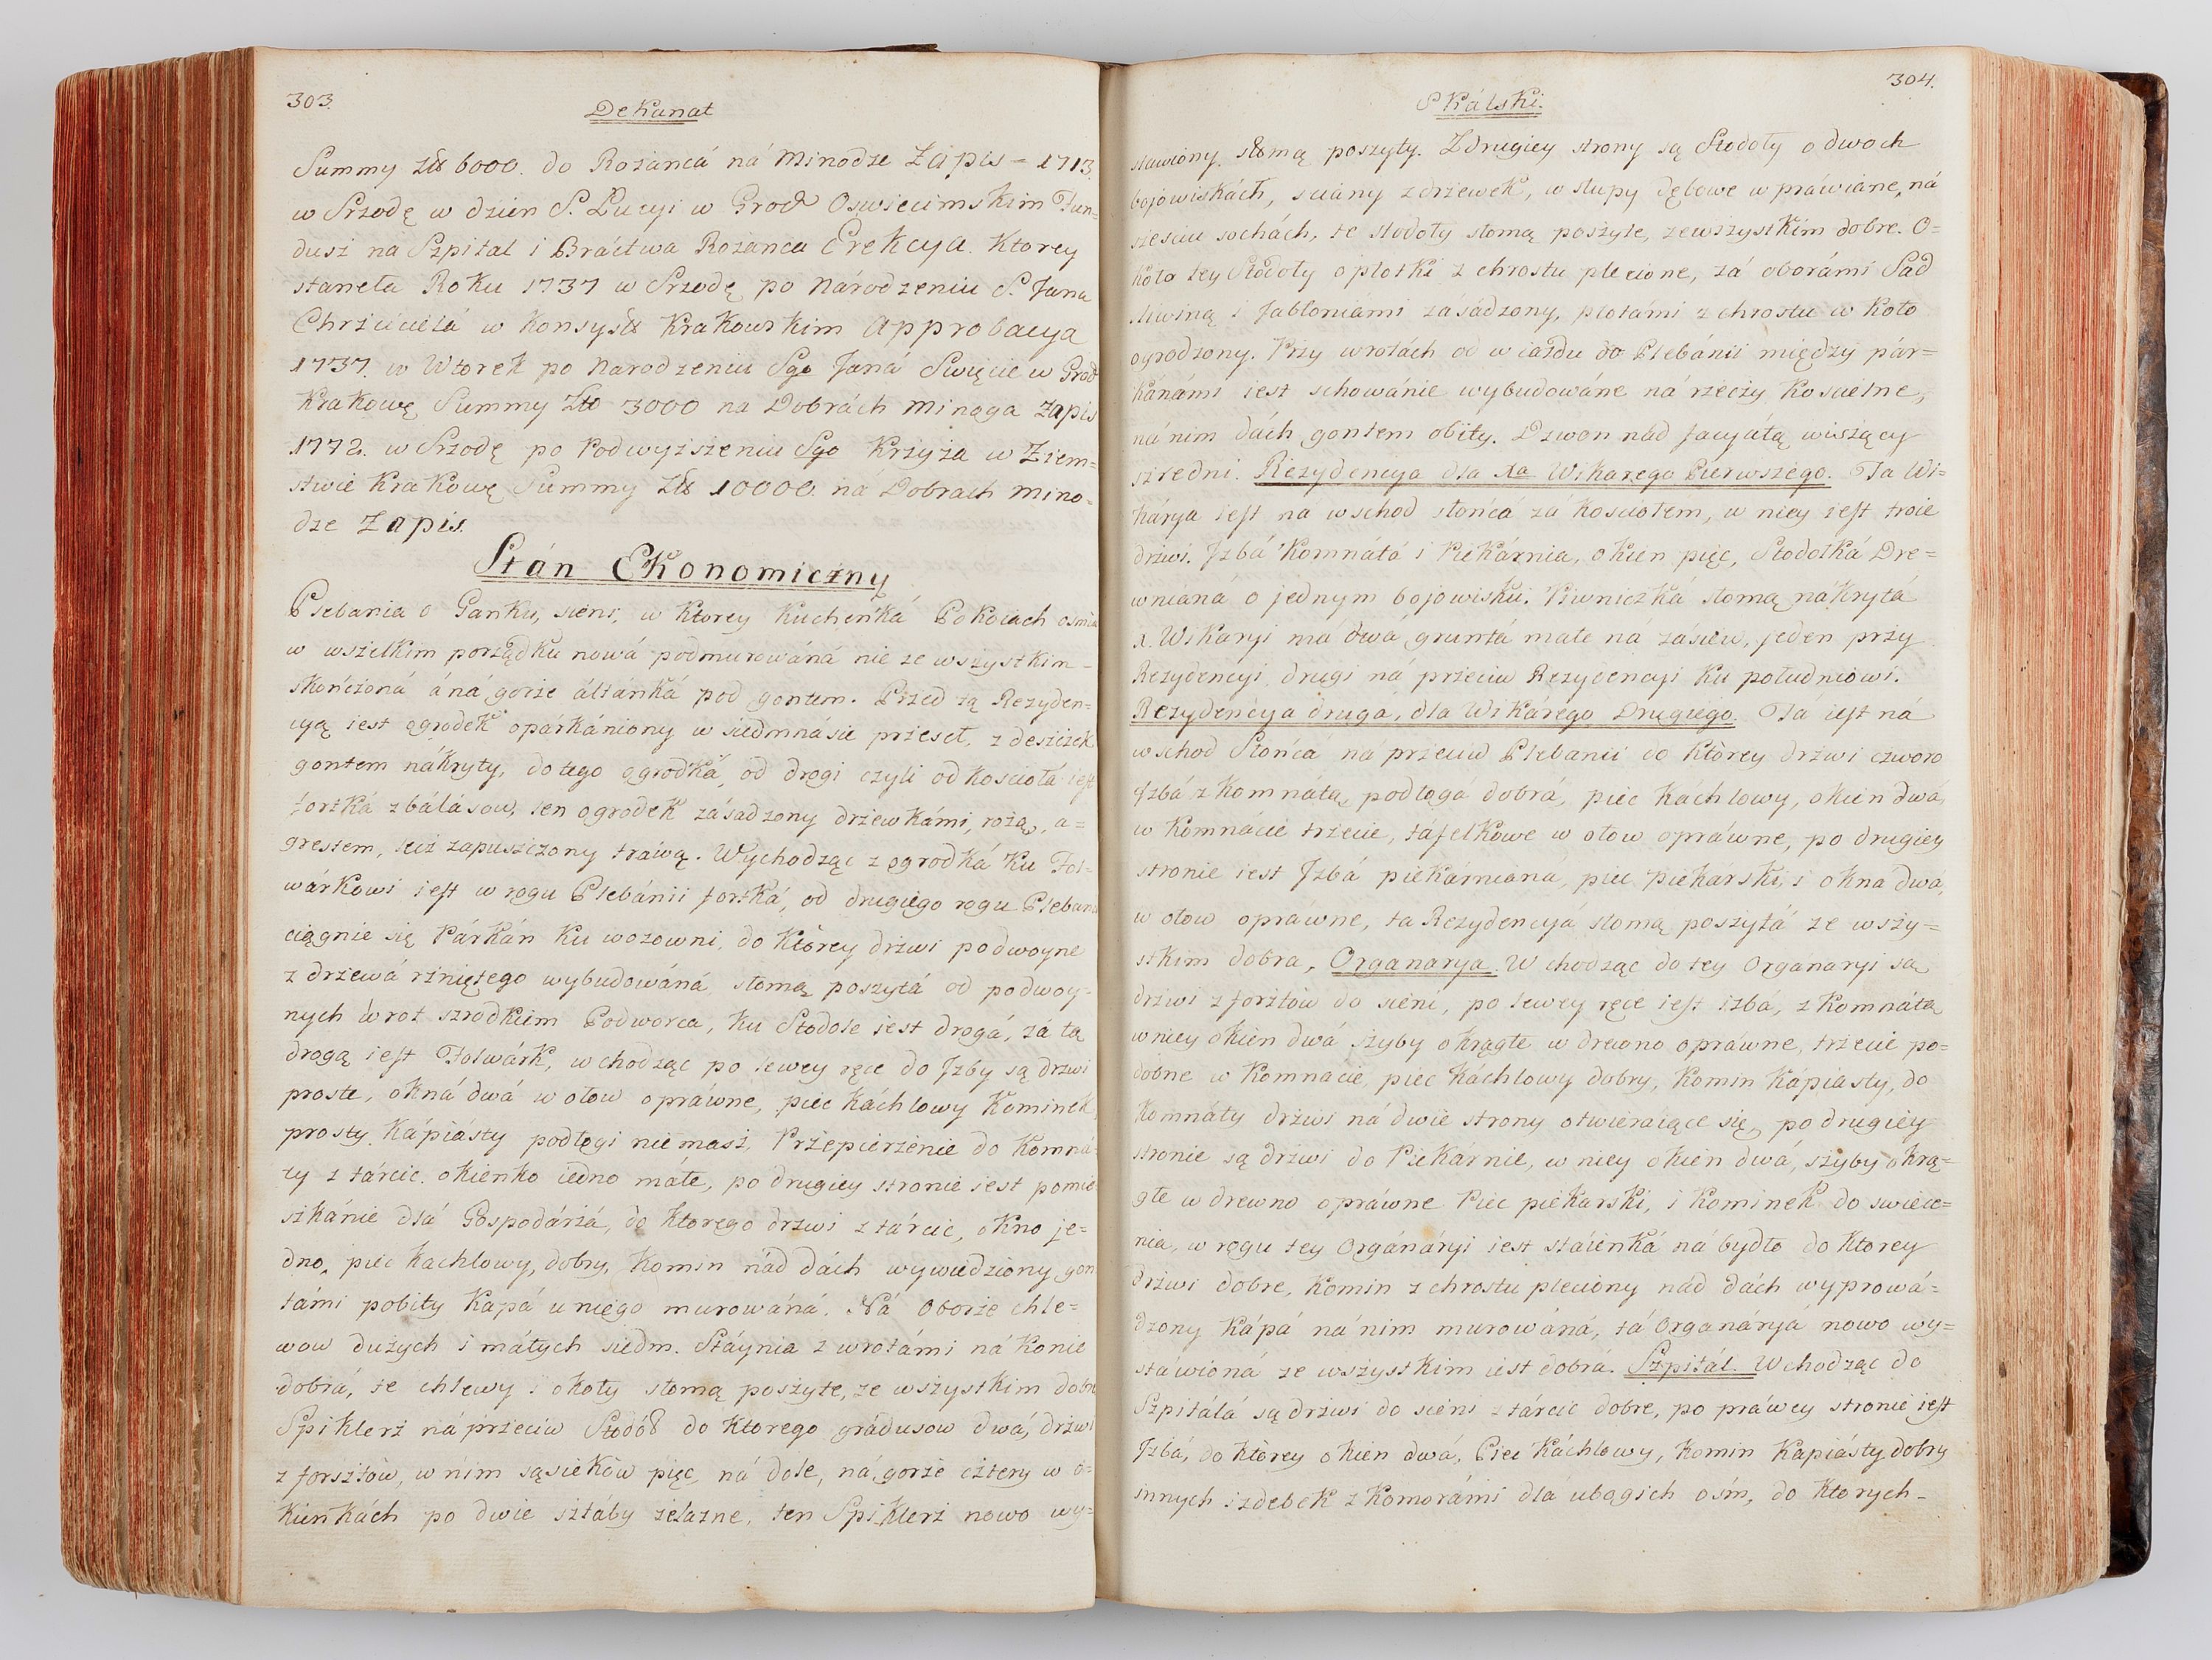 303.
Dekanat
Summy Złł 6000. do Rożáncá ná Minodze Zapis = 1713.
w Srzodę w dzien S. Lucyi w Grod Oswiecimskim Fun=
dusz na Szpital i Bráctwa Rożanca Erekcya. Ktorey
staneła Roku 1737 w Srzodę po Národzeniu S. Jana
Chrzciciela w Konsyst Krakowskim Approbacya
1737. w Wtorek po Narodzeniu Sgo Janá Swięcie w Grod
Krakowę Summy Złto 3000 na Dobrách Minoga Zapis
1772. w Srzodę po Podwyższeniu Sgo Krzyża w Ziem=
stwie Krakowę Summy Złł 10000. na Dobrach Mino=
dze Zapis.
Stán Ekonomiczny
Plebania o Ganku, sieni, w ktorey Kuchenká Pokoiach osmiu
w wszelkim porządku nowá podmurowáná nie ze wszystkim=
skończoná á ná gorze áltánká pod gontem. Przed tą Rezyden=
cyą iest ogrodek opárkániony w siedmnásie przeseł, z deszczek
gontem nákryty, do tego ogrodká od drogi czyli od kosciołá iest
fortká z bálásow, ten ogrodek zásadzony drzewkámi, rożą, a=
grestem, lecz zapuszczony tráwą. Wychodząc z ogrodká ku Fol=
wárkowi iest w rogu Plebánii fortká, od drugiego rogu Plebani
ciągnie się Párkán ku wozowni, do ktorey drzwi podwoyne
z drzewá rzniętego wybudowáná słomą poszytá od podwoy=
nych wrot szrodkiem Podworca, ku Stodole iest drogá, za tą
drogą iest Folwárk, wchodząc po lewey ręce do Jzby są drzwi
proste, okná dwá w ołow opráwne, piec káchlowy Kominek
prosty Kápiásty podłogi nie masz, Przepierzenie do Komná=
ty z tárcic. okienko iedno máłe, po drugiey stronie iest pomie
szkánie dlá Gospodárzá, do ktorego drzwi z tárcic, okno je=
dno, piec kachlowy, dobry, Komin nád dách wywiedziony gon
támi pobity Kapá u niego murowáná. Ná Oborze chle=
wow dużych i máłych siedm. Stáynia z wrotámi ná konie
dobrá, te chlewy i okoły słomą poszyte, ze wszystkim dobre
Spiklerz náprzeciw Stodoł do ktorego grádusow dwá, drzwi
z forsztow, w nim sąsiekow pięc, ná dole, ná gorze cztery w o=
kienkách po dwie sztáby żelazne, ten Spiklerz nowo wy=
304.
Skálski.
stawiony, słomą poszyty. Z drugiey strony są Stodoły o dwoch
bojowiskách, sciany z drzewek, w słupy dębowe wpráwiane, ná
szesciu sochách, te stodoły słomą poszyte, zewszystkim dobre. O=
koło tey Stodoły opłotki z chrostu plecione, zá oborámi Sad
sliwiną i Jabłoniámi zásádzony, płotámi z chrostu w koło
ogrodzony. Przy wrotách od wiazdu do Plebánii między pár=
kánámi iest schowánie wybudowáne ná rzeczy Koscielne,
ná nim dách gontem obity. Dzwon nad facyatą wiszący
szredni. Rezydencya dla Xa Wikarego Pierwszego. Ta Wi=
kárya iest na wschod słońca zá Kosciołem, w niey iest troie
drzwi. Jzbá Komnátá i Piekárnia, okien pięc, Stodołká Dre=
wnianá o jednym bojowisku. Piwniczká słomą nákrytá
X. Wikaryi ma dwá gruntá máłe ná zásiew, jeden przy
Rezydencyi drugi ná przeciw Rezydencyi ku południowi.
Rezydencya druga, dla Wikárego Drugiego. Ta iest ná
wschod Słońcá ná przeciw Plebanii do ktorey drzwi czworo
Jzbá z Komnátą, podłogá dobrá, piec Kachlowy, okien dwá,
w Komnácie trzecie, táfelkowe w ołow opráwne, po drugiey
stronie iest Jzbá piekarnianá, piec piekarski, i okna dwa,
w ołow opráwne, ta Rezydencyá słomą poszytá ze wszy=
stkim dobra, Organarya. Wchodząc do tey Organaryi są
drzwi z forsztow do sieni, po lewey ręce iest izbá, z Komnátą
w niey okien dwá szyby okrągłe w drewno opráwne, trzecie po=
dobne w Komnacie, piec káchlowy dobry, Komin Kapiasty, do
Komnáty drzwi ná dwie strony otwieraiące się, po drugiey
stronie są drzwi do Piekárnie, w niey okien dwá, szyby okrą=
głe w drewno opráwne Piec piekarski, i Kominek do swiece=
nia, w rogu tey Orgánáryi iest stáienká ná bydło do ktorey
drzwi dobre, Komin z chrostu pleciony nád dách wyprowá=
dzony Kápá ná nim murowáná, tá Organáryá nowo wy=
stáwioná ze wszystkim iest dobrá. Szpitál. Wchodząc do
Szpitálá są drzwi do sieni z tárcic dobre, po práwey stronie iest
Jzbá, do ktorey okien dwá, Piec Káchlowy, Komin Kapiásty dobry
innych izdebek z Komorámi dla ubogich osm, do ktorych=